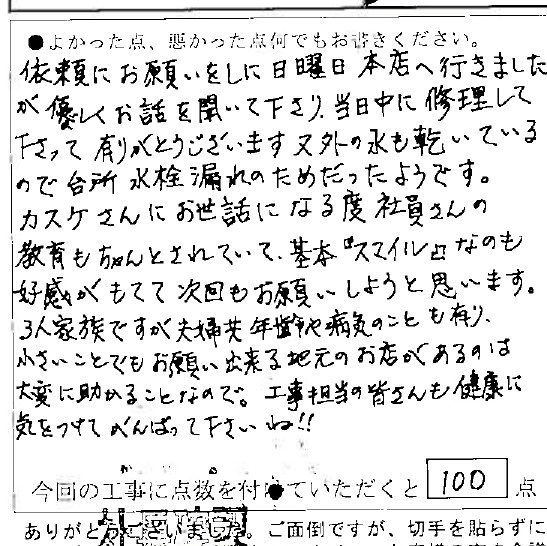 ●よかった点、悪かった点何でもお書きください。
依頼にお願いをしに日曜日本店へ行きました
が優しくお話を聞いて下さり、当日中に修理して
下さって有りがとうございます又外の水も乾いている
ので台所水栓漏れのためだったようです。
カスケさんにお世話になる度社員さんの
教育もちゃんとされていて、基本『スマイル』なのも
好感がもてて次回もお願いしようと思います。
3人家族ですが夫婦共年齢や病気のことも有り、
小さいことでもお願い出来る地元のお店があるのは
大変に助かることなので。工事担当の皆さんも健康に
気をつけてがんばって下さいね!!
今回の工事に点数を付けていただくと 100 点
ありがとうございました。ご面倒ですが、切手を貼らずに